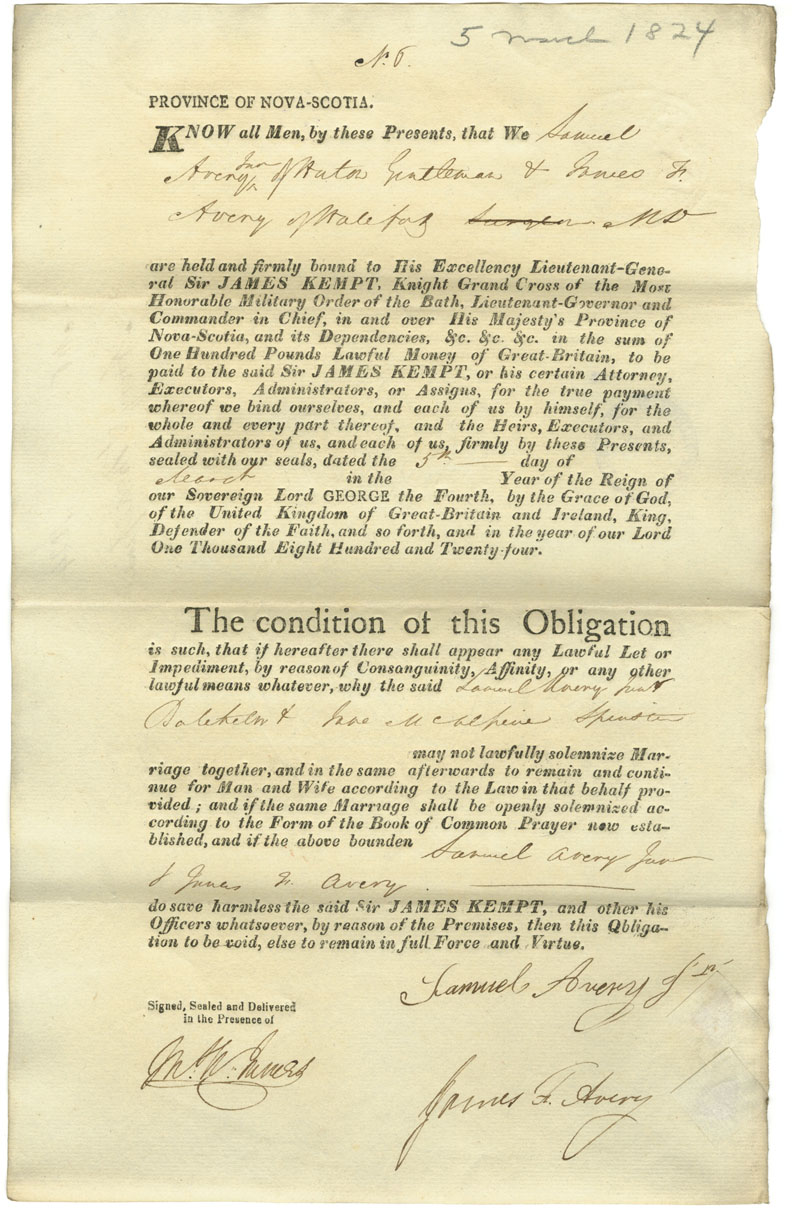 5 March 1824
No. 6.
PROVINCE OF NOVA-SCOTIA.
KNOW all Men, by these Presents, that We Samuel
Avery Junr of Gentleman & James F.
Avery of Halifax Surgeon MD
are held and firmly bound to His Excellency Lieutenant-Gene-
ral Sir JAMES KEMPT, Knight Grand Cross of the Most
Honorable Military Order of the Bath, Lieutenant-Governor and
Commander in Chief, in and over His Majesty's Province of
Nova-Scotia, and its Dependencies, &c. &c. &c. in the sum of
One Hundred Pounds Lawful Money of Great-Britain, to be
paid to the said Sir JAMES KEMPT, or his certain Attorney,
Executors, Administrators, or Assigns, for the true payment
whereof we bind ourselves, and each of us by himself, for the
whole and every part thereof, and the Heirs, Executors, and
Administrators of us, and each of us, firmly by these Presents,
sealed with our seals, dated the 5th day of
March in the Year of the Reign of
our Sovereign Lord GEORGE the Fourth, by the Grace of God,
of the United Kingdom of Great-Britain and Ireland, King,
Defender of the Faith, and so forth, and in the year of our Lord
One Thousand Eight Hundred and Twenty-four.
The condition of this Obligation
is such, that if hereafter there shall appear any Lawful Let or
Impediment, by reason of Consanguinity, Affinity, or any other
lawful means whatever, why the said Samuel Avery Junr
Batchelor & Jane McAlpine Spinster
may not lawfully solemnize Mar-
riage together, and in the same afterwards to remain and conti-
nue for Man and Wife according to the Law in that behalf pro-
vided; and if the same Marriage shall be openly solemnized ac-
cording to the Form of the Book of Common Prayer now esta-
blished, and if the above bounden Samuel Avery Junr
& James F. Avery.
do save harmless the said Sir JAMES KEMPT, and other his
Officers whatsoever, by reason of the Premises, then this Obliga-
tion to be void, else to remain in full Force and Virtue.
Samuel Avery Jnr
Signed, Sealed and Delivered
in the Presence of
James F. Avery